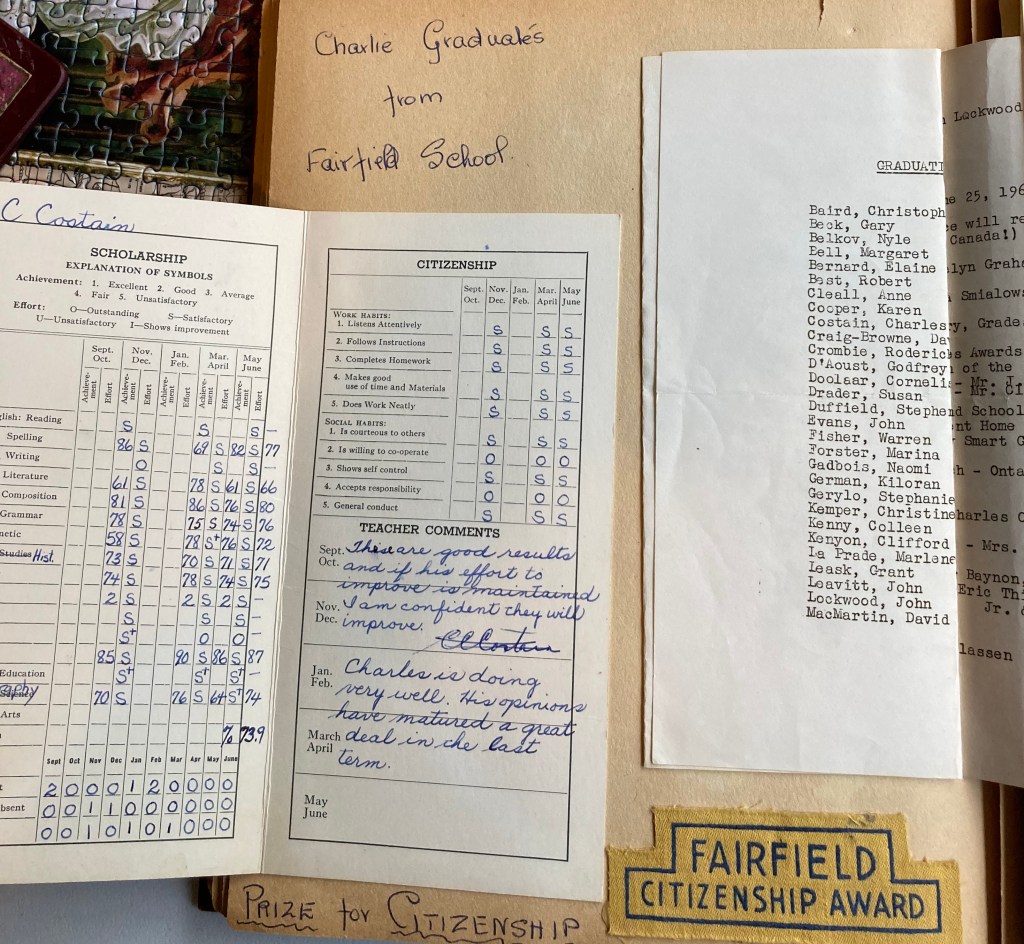 Charlie Graduates
from
Fairfield School.
C Costain
SCHOLARSHIP
EXPLANATION OF SYMBOLS
Achievement: 1. Excellent 2. Good 3. Average
4. Fair 5. Unsatisfactory
Effort: O—Outstanding S—Satisfactory
U—Unsatisfactory I—Shows improvement
Sept. Oct. Nov. Dec. Jan. Feb. Mar. April May June
Achievement Effort Achievement Effort Achievement Effort Achievement Effort Achievement Effort
glish: Reading S S S —
Spelling 86 S 69 S 82 S 77
Writing O S S —
Literature 61 S 78 S 61 S 66
Composition 81 S 86 S 76 S 80
Grammar 78 S 75 S 74 S 76
metic 58 S 78 S+ 76 S 72
Studies Hist. 73 S 70 S 71 S 71
74 S 78 S 74 S 75
2 S 2 S 2 S —
S S S —
S+ O O —
85 S 90 S 86 S 87
Education S+ S+ S+ —
70 S 76 S 64 S+ 74
Arts
% 73.9
Sept Oct Nov Dec Jan Feb Mar Apr May June
2 0 0 0 1 2 0 0 0 0
bsent 0 0 1 1 0 0 0 0 0 0
0 0 1 0 1 0 1 0 0 0
CITIZENSHIP
Sept. Oct. Nov. Dec. Jan. Feb. Mar. April May June
WORK HABITS:
1. Listens Attentively S S S
2. Follows Instructions S S S
3. Completes Homework S S S
4. Makes good
use of time and Materials S S S
5. Does Work Neatly S S S
SOCIAL HABITS:
1. Is courteous to others S S S
2. Is willing to co-operate O O O
3. Shows self control S S S
4. Accepts responsibility O O O
5. General conduct S S S
TEACHER COMMENTS
Sept. These are good results
Oct. and if his effort to
improve is maintained
Nov. I am confident they will
Dec. improve.
CCCostain
Jan. Charles is doing
Feb. very well. His opinions
have matured a great
March deal in the last
April term.
May
June
GRADUATI
Baird, Christoph
Beck, Gary
Belkov, Nyle
Bell, Margaret
Bernard, Elaine
Best, Robert
Cleall, Anne
Cooper, Karen
Costain, Charles
Craig-Browne, Da
Crombie, Roderic
D'Aoust, Godfrey
Doolaar, Corneli
Drader, Susan
Duffield, Stephen
Evans, John
Fisher, Warren
Forster, Marina
Gadbois, Naomi
German, Kiloran
Gerylo, Stephanie
Kemper, Christine
Kenny, Colleen
Kenyon, Clifford
La Prade, Marlene
Leask, Grant
Leavitt, John
Lockwood, John
MacMartin, David
Lockwood
e 25, 196
e will re
Canada!)
lyn Grah
Smialows
y, Grade
s Awards
of the
- Mr. J.
- Mr. Cl
d School
nt Home
Smart G
h - Onta
harles C
- Mrs.
Baynon,
Eric Th
Jr.
lassen
FAIRFIELD
CITIZENSHIP AWARD
PRIZE for CITIZENSHIP